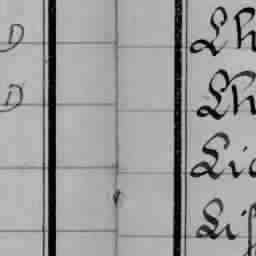 D Lh
D Lh
Lic
Lif